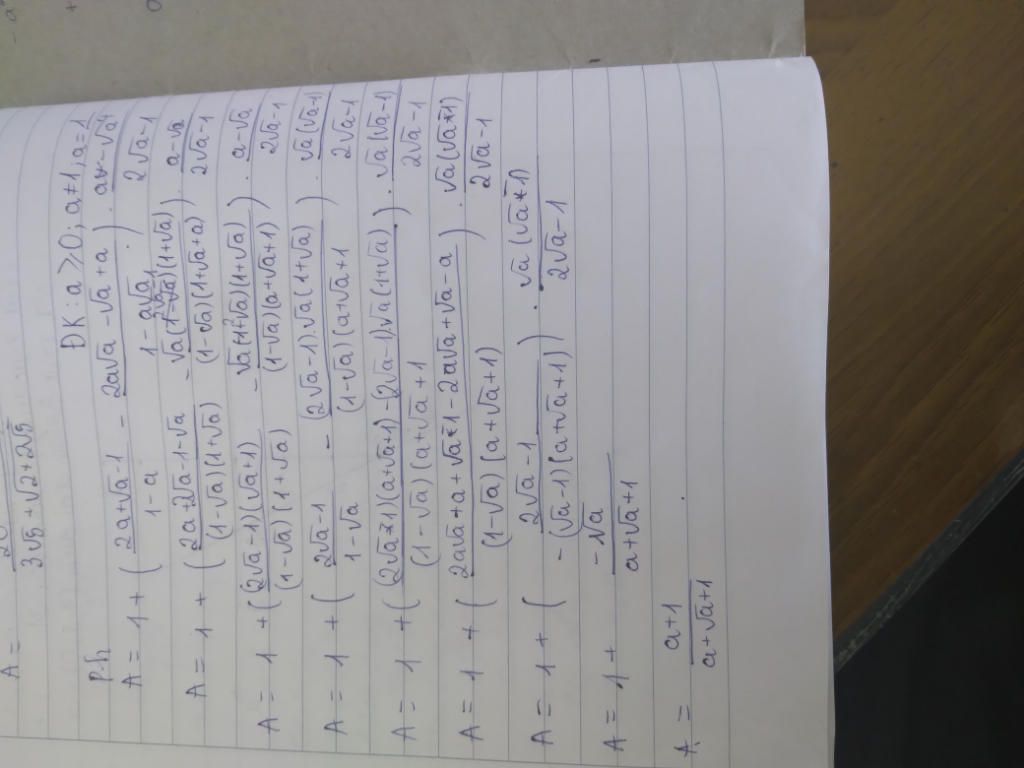 A =
3√5 + √2 + 2√5
P.h ĐK: a ≥ 0; a ≠ 1; a = 1
A = 1 + ( (2a + √a - 1)/(1 - a) - (2a√a - √a + a)/(1 - a√a) ) . (a - √a)/(2√a - 1)
A = 1 + ( (2a + 2√a - 1 - √a)/((1 - √a)(1 + √a)) - √a(1 + √a)/((1 - √a)(1 + √a + a)) ) . (a - √a)/(2√a - 1)
A = 1 + ( (2√a - 1)(√a + 1)/((1 - √a)(1 + √a)) - √a(1 + √a)(1 + √a)/((1 - √a)(a + √a + 1)) ) . (a - √a)/(2√a - 1)
A = 1 + ( (2√a - 1)/(1 - √a) - (2√a - 1).√a(1 + √a)/((1 - √a)(a + √a + 1) ) . √a(√a - 1)/(2√a - 1)
A = 1 + ( ((2√a - 1)(a + √a + 1) - (2√a - 1)√a(1 + √a))/((1 - √a)(a + √a + 1) ) . √a(√a - 1)/(2√a - 1)
A = 1 + ( (2a√a + a + √a - 1 - 2a√a + √a - a)/((1 - √a)(a + √a + 1)) ) . √a(√a - 1)/(2√a - 1)
A = 1 + ( (2√a - 1)/(-(√a - 1)(a + √a + 1)) ) . √a(√a - 1)/(2√a - 1)
A = 1 + (-√a)/(a + √a + 1)
A = (a + 1)/(a + √a + 1) .